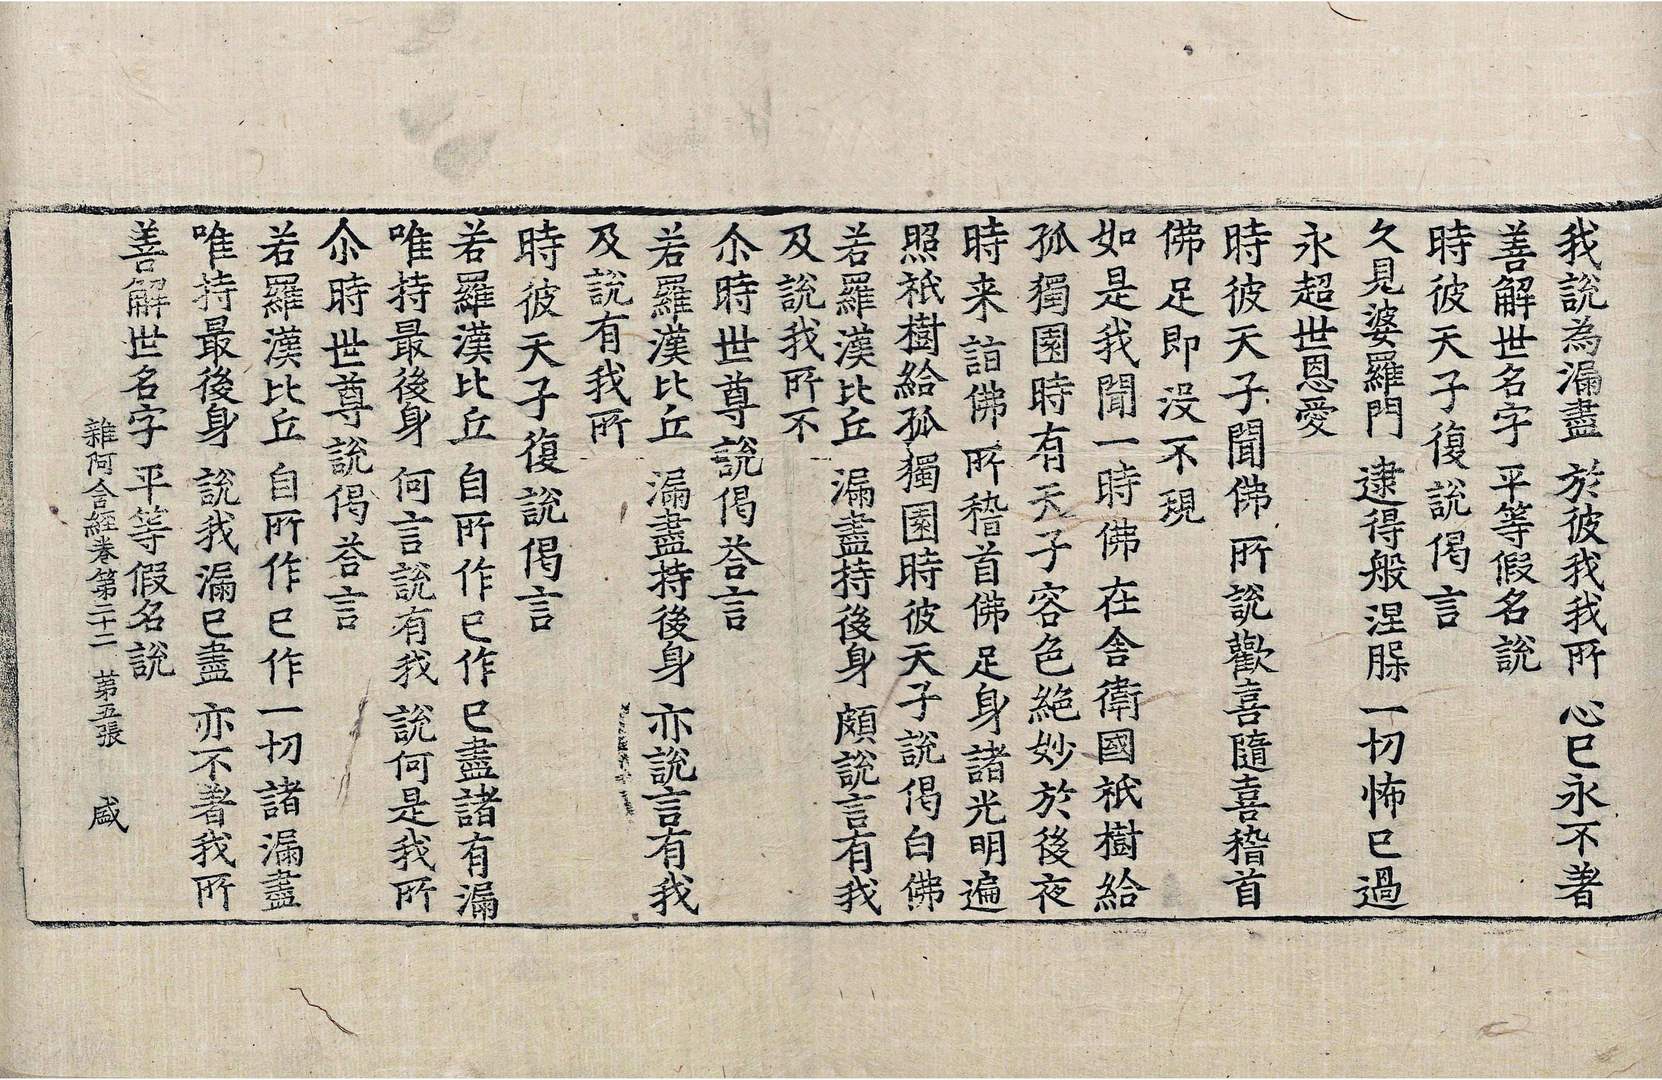 我說為漏盡 於彼我我所 心已永不著
善解世名字 平等假名說
時彼天子復說偈言
久見婆羅門 逮得般涅槃 一切怖已過
永超世恩愛
時彼天子聞佛所說歡喜隨喜稽首
佛足即沒不現
如是我聞一時佛在舍衛國祇樹給
孤獨園時有天子容色絕妙於後夜
時来詣佛所稽首佛足身諸光明遍
照祇樹給孤獨園時彼天子說偈白佛
若羅漢比丘 漏盡持後身 頗說言有我
及說我所不
尒時世尊說偈荅言
若羅漢比丘 漏盡持後身 亦說言有我
及說有我所
時彼天子復說偈言
若羅漢比丘 自所作已作 已盡諸有漏
唯持最後身 何言說有我 說何是我所
尒時世尊說偈荅言
若羅漢比丘 自所作已作 一切諸漏盡
唯持最後身 說我漏已盡 亦不著我所
善解世名字 平等假名說
雜阿含經卷第二十二 第五張 盛